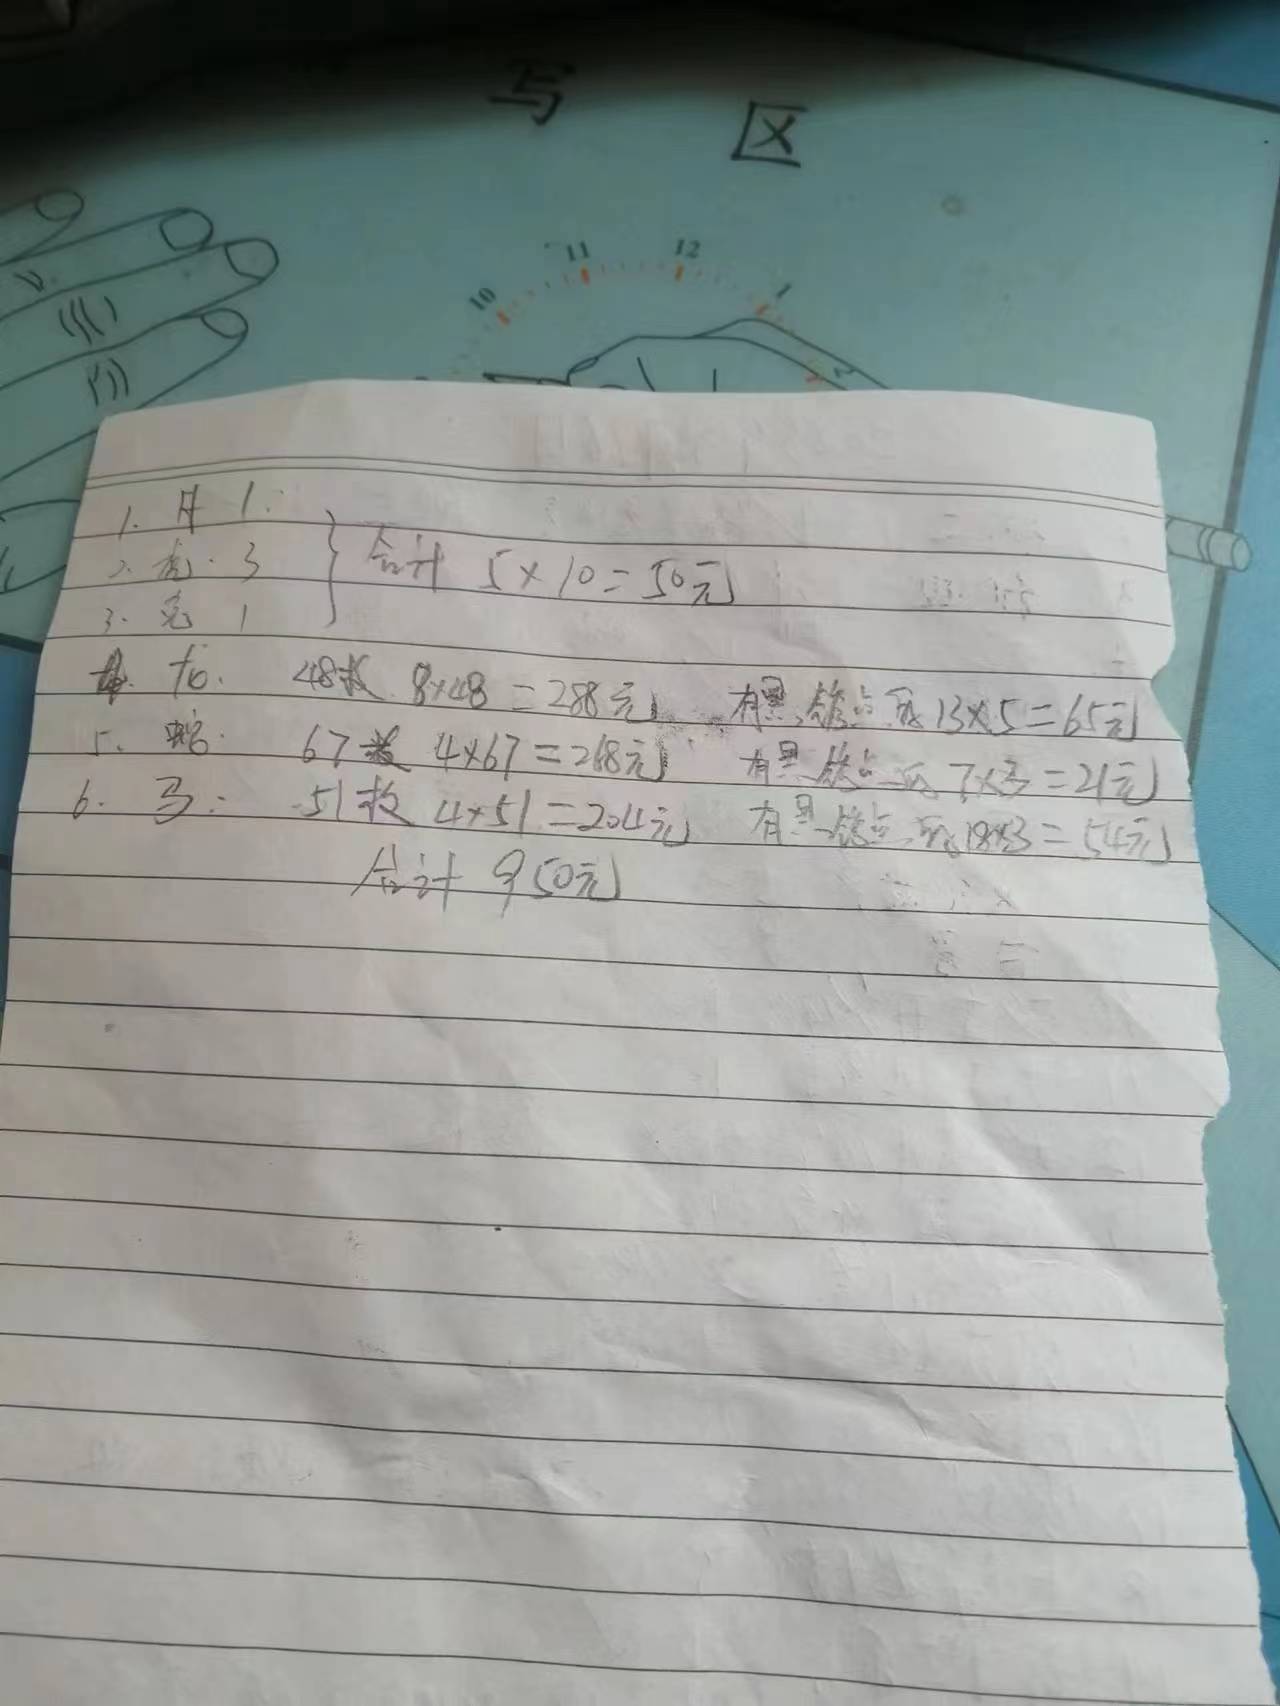 写 区
10 11 12 1 2
1. 牛 1.
2. 虎. 3
3. 兔 1
合计 5×10=50元
4. 龙. 48枚 8×48=288元 有黑锈点 13×5=65元
5. 蛇. 67枚 4×67=268元 有黑锈点 7×3=21元
6. 马: 51枚 4×51=204元 有黑锈点 18×3=54元
合计 950元